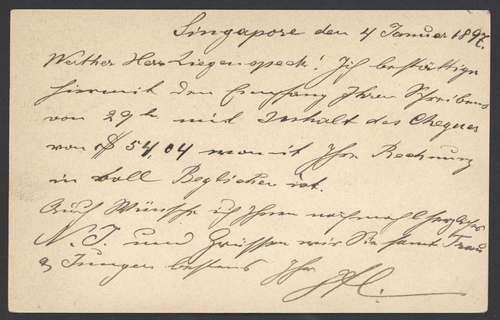 Singapore den 4 Januar 1897.
Werther Herr Ziegenspeck! Ich bestättige
hiermit den Empfang Ihres Schreibens
von 29t mit Inhalt des Cheques
von $ 54,04 womit Ihre Rechnung
in voll Beglichen ist.
Auch Wünsche ich Ihnen nochmahl herzliches
N. J. und Grüssen wir Sie samt Frau
& Jungen bestens Ihr